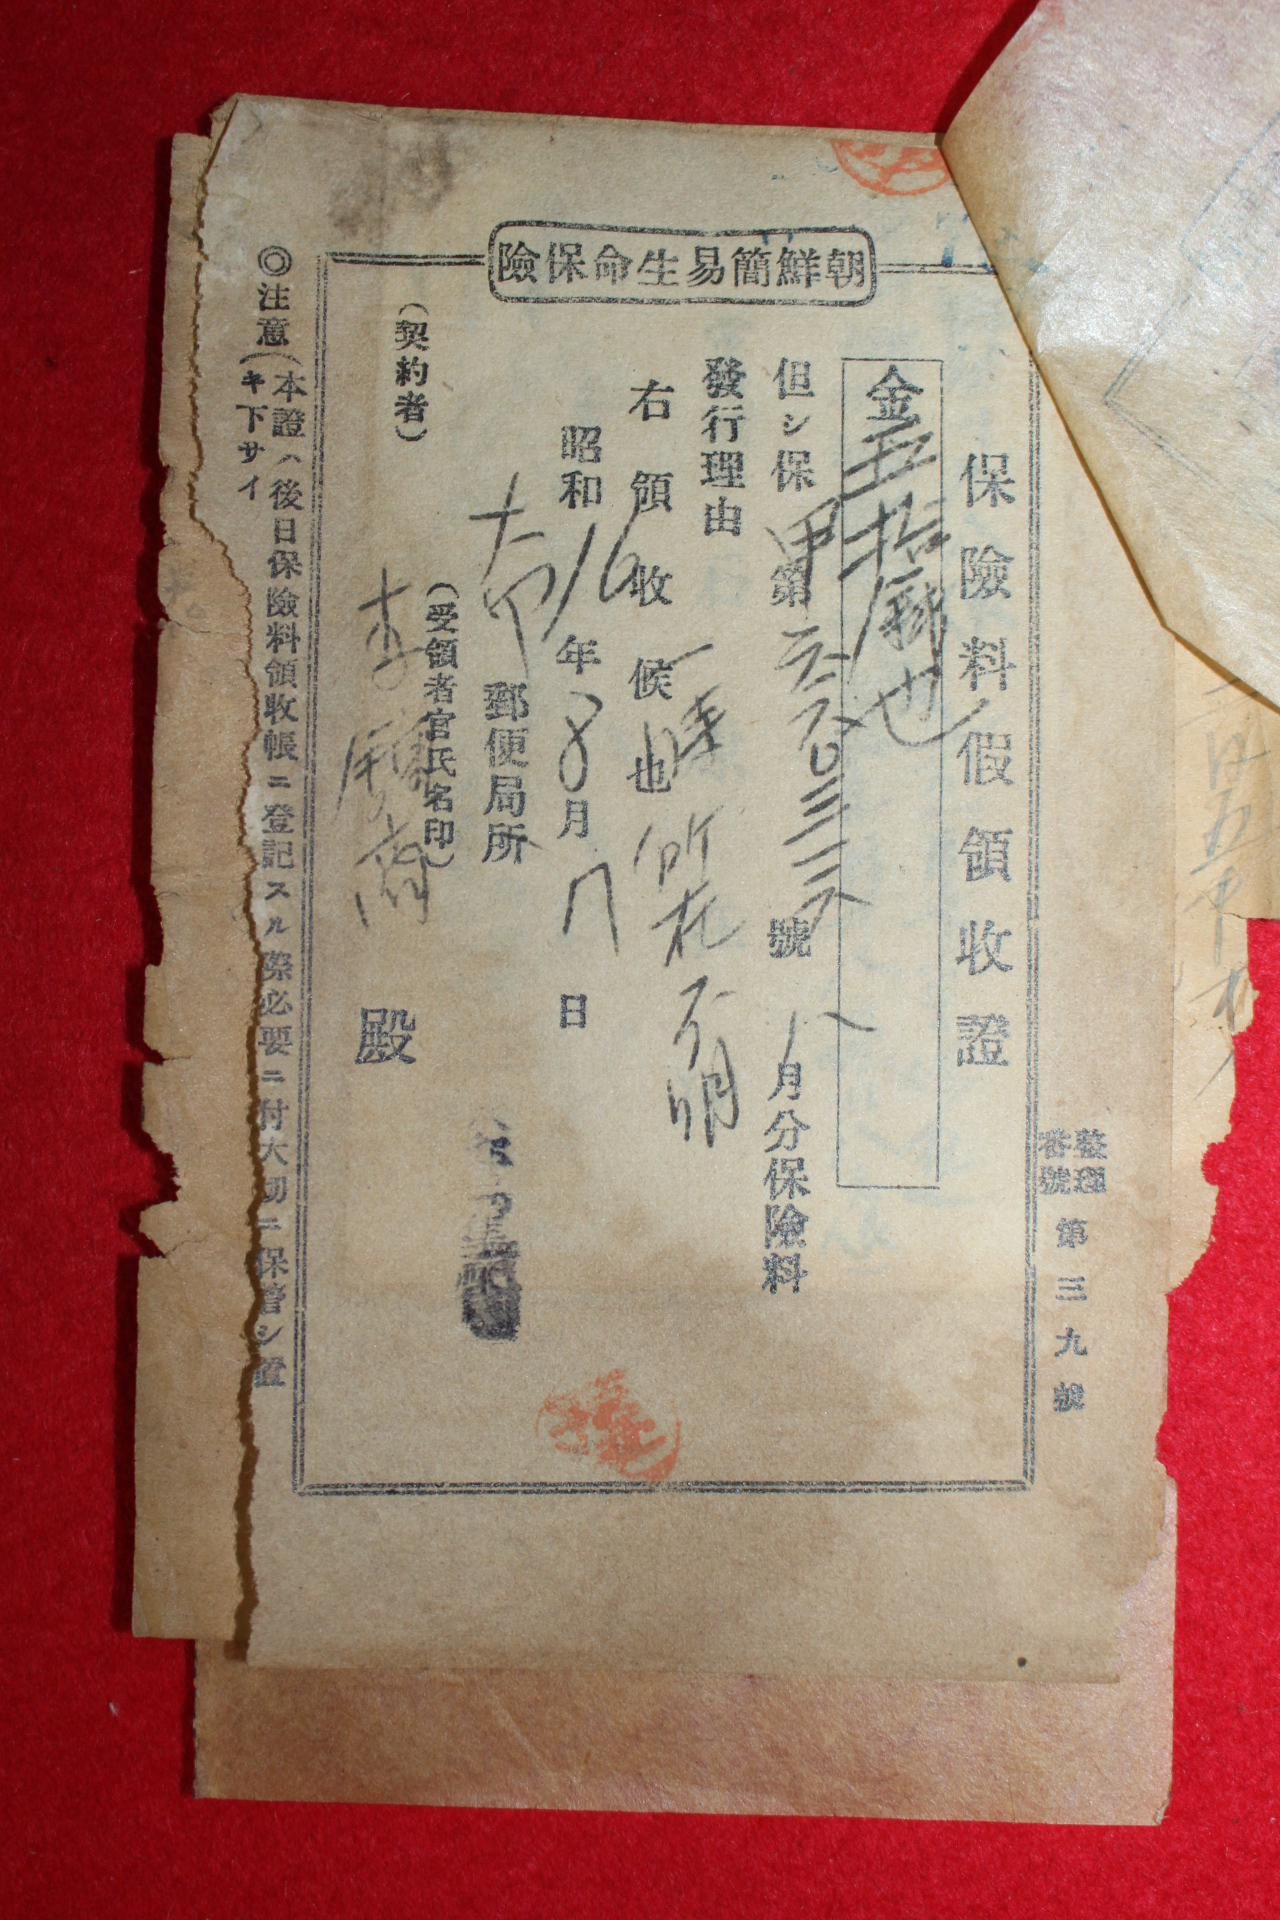 朝鮮簡易生命保險
整理番號 第三九號
保險料假領收證
金五拾錢也
但シ保 甲第 號 八月分保險料
發行理由 一時所在不明
右領收候也
昭和16年8月 日
郵便局所
(受領者官氏名印)
(契約者) 李 殿
◎注意(本證ハ後日保險料領收帳ニ登記スル際必要ニ付大切ニ保管シ置
キ下サイ